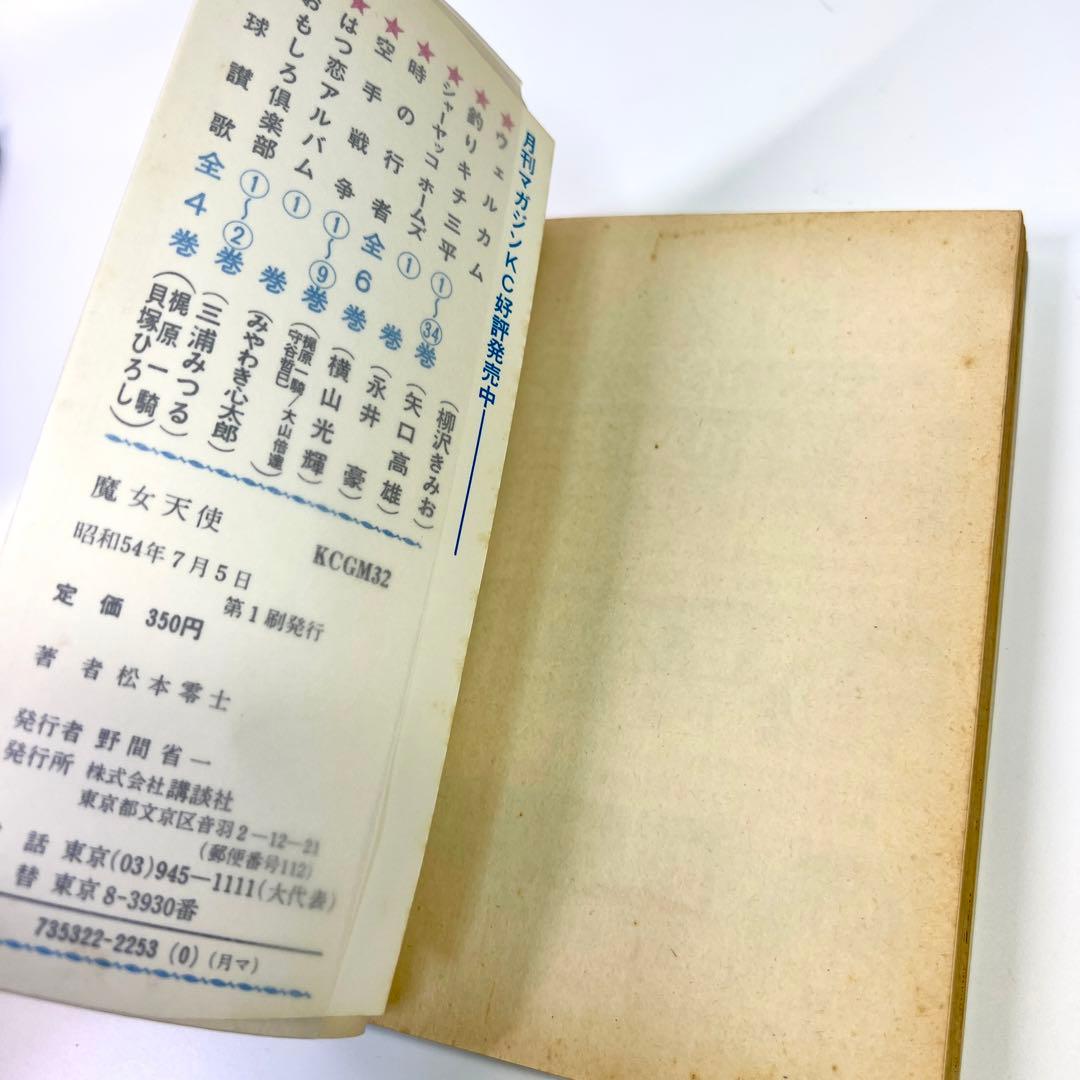 月刊マガジンKC好評発売中
★ウェルカム (柳沢きみお)
★釣りキチ三平 ①〜㉞巻 (矢口高雄)
★シャーヤッコホームズ ① 巻 (永井豪)
★時の行者 全6巻 (横山光輝)
★空手戦争 ①〜⑨巻 (梶原一騎/大山倍達 守谷哲巳)
★はつ恋アルバム ① 巻 (みやわき心太郎)
おもしろ倶楽部 ①〜②巻 (三浦みつる)
球讃歌 全4巻 (梶原一騎 貝塚ひろし)
魔女天使 KCGM32
昭和54年7月5日 第1刷発行
定価 350円
著者 松本零士
発行者 野間省一
発行所 株式会社講談社
東京都文京区音羽2-12-21
(郵便番号112)
話 東京(03)945-1111(大代表)
替 東京8-3930番
735322-2253 (0) (月マ)